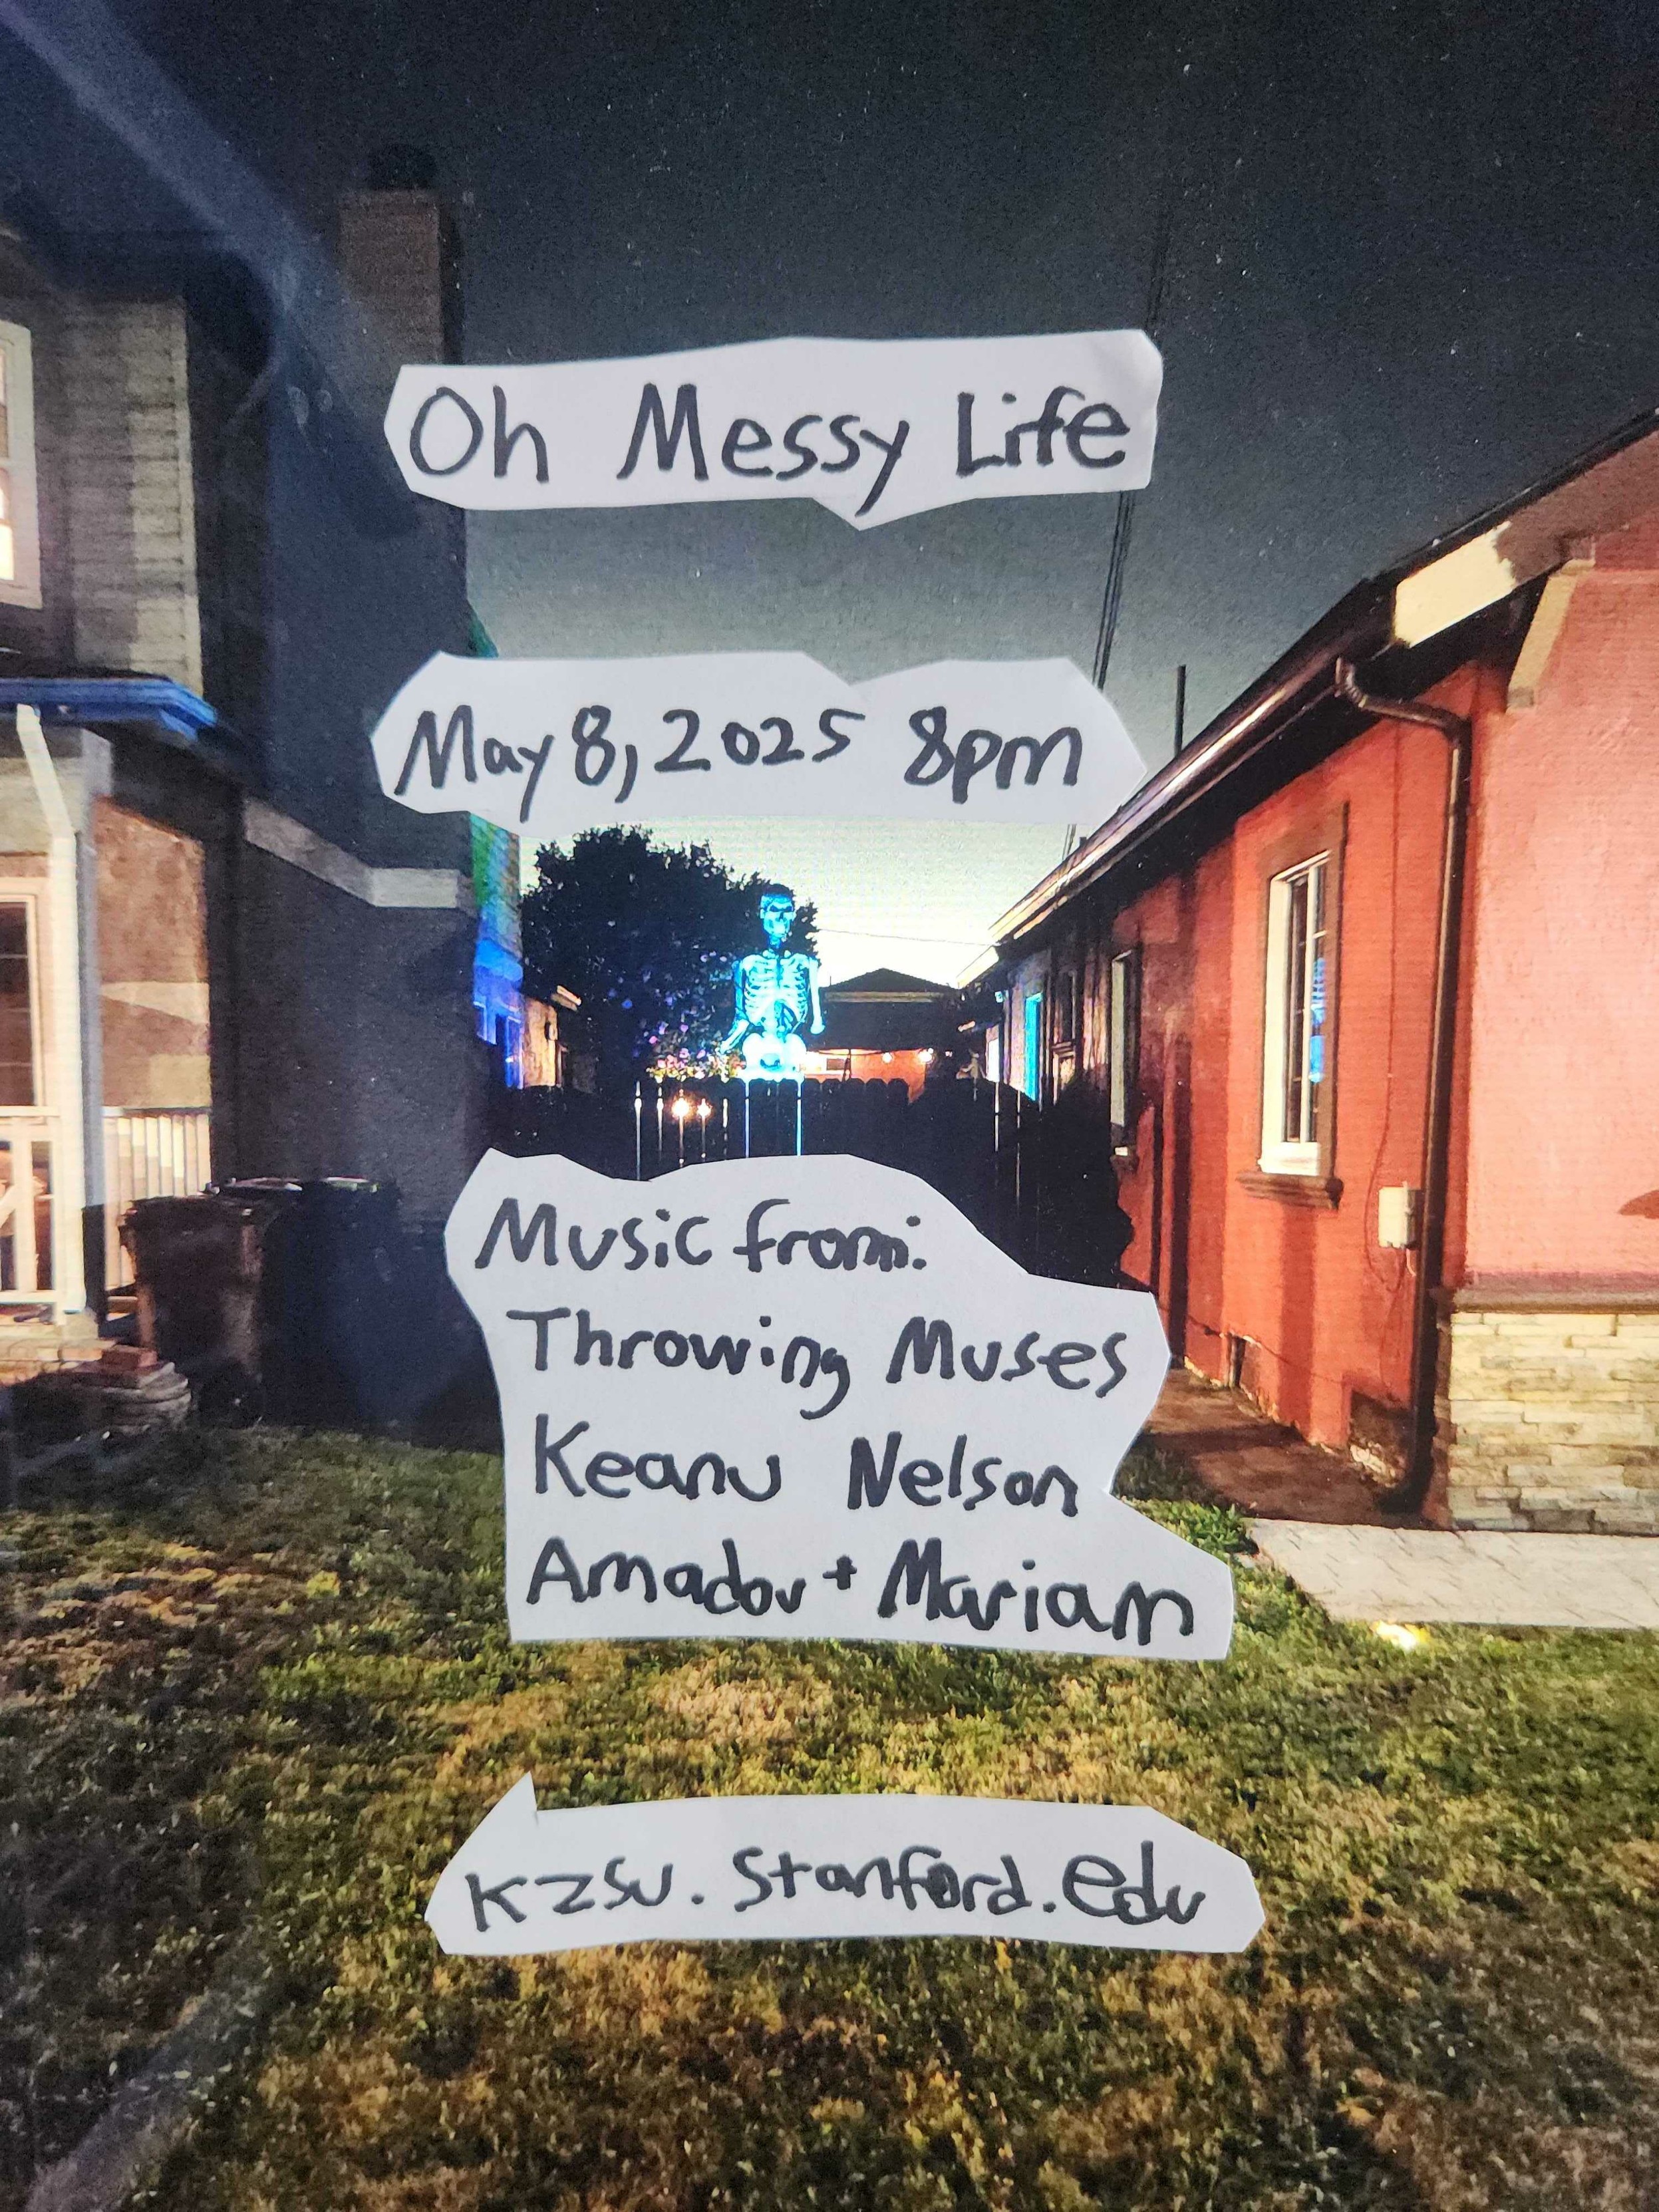 Oh Messy Life
May 8, 2025 8pm
Music from:
Throwing Muses
Keanu Nelson
Amador + Mariam
kzsu.stanford.edu